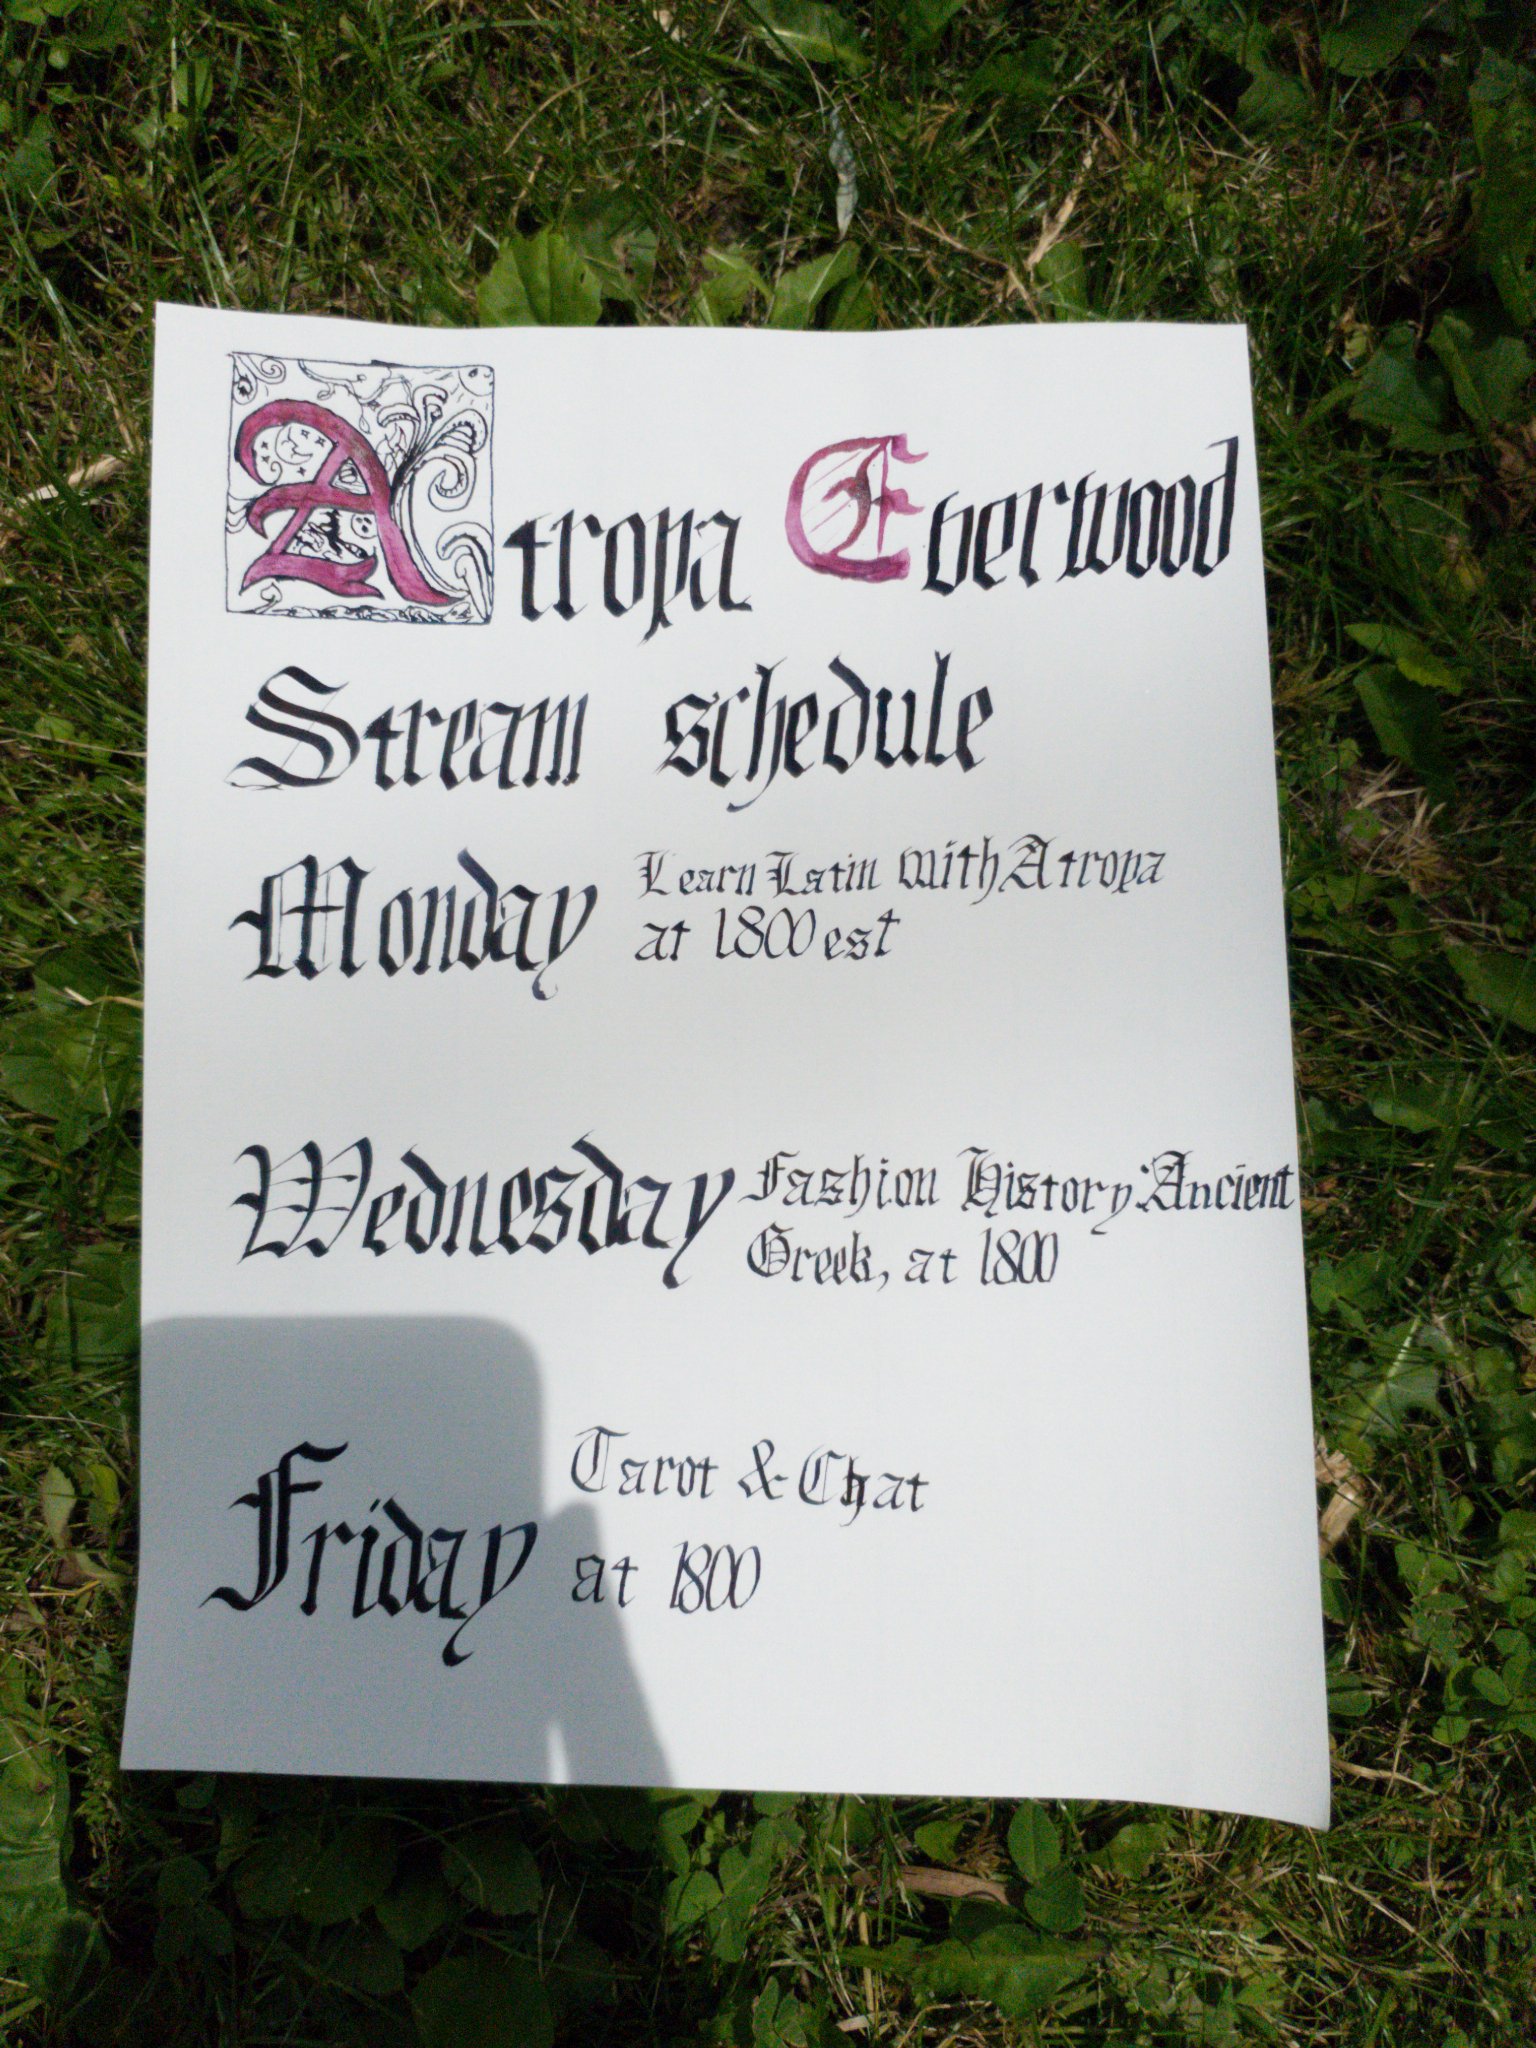 Atropa Everwood
Stream schedule
Monday
Learn Latin with Atropa
at 1800 est
Wednesday
Fashion History: Ancient
Greek, at 1800
Friday
Tarot & Chat
at 1800